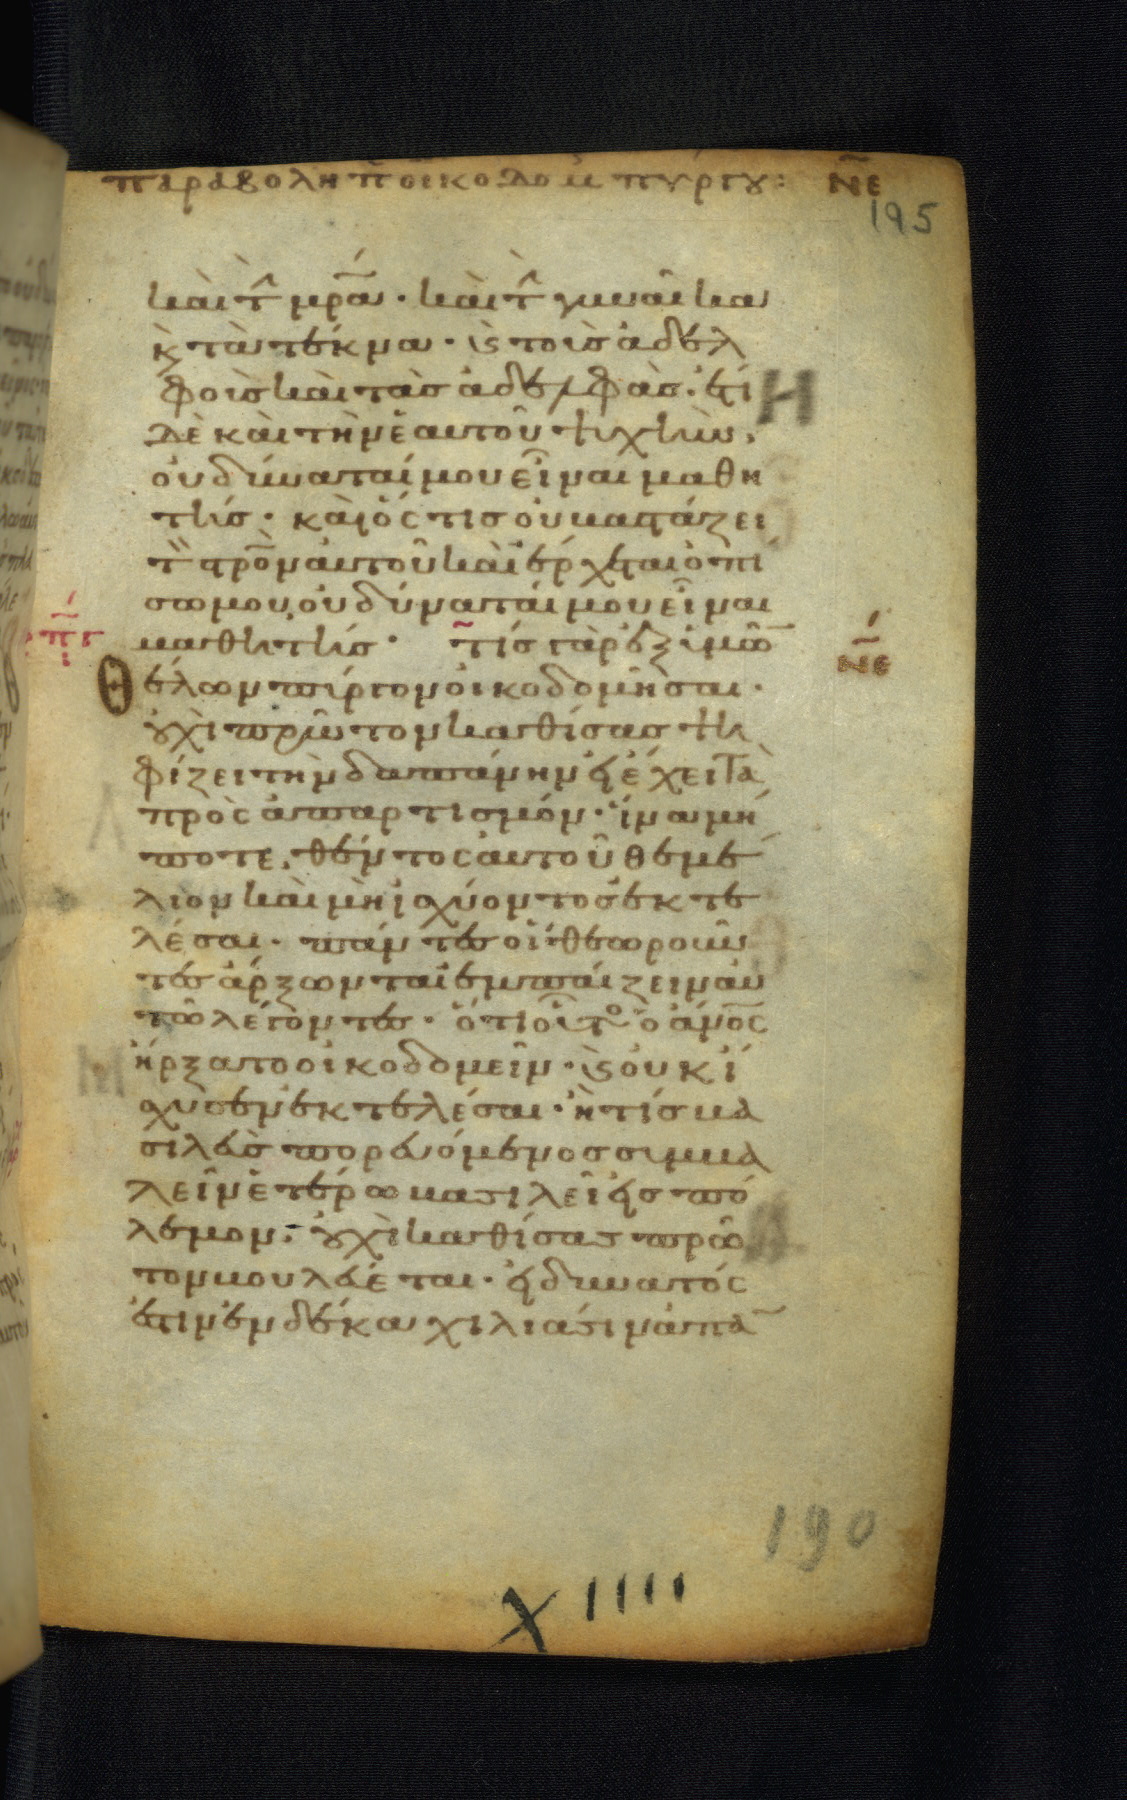 παραβολη π οικοδομ πυργȣ: ΝΕ
195
καὶ τ μρα · καὶ τ γυναῖκα
κ τὰ τέκνα · κ τοὺς ἀδελ
φοὺς καὶ τὰς ἀδελφὰς · ἔτι
Η
δὲ καὶ τὴν ἑαυτοῦ ψυχὴν ·
οὐ δύναταί μου εἶναι μαθη
τής · καὶ ὅς τις οὐ βαστάζει
τ στρον αὑτοῦ καὶ ἔρχεται ὀπί
σω μου, οὐ δύναταί μου εἶναι
μαθητής · τίς γὰρ ἐξ ὑμῶ
ΝΕ
Θέλων πύργον οἰκοδομῆσαι ·
ȣχὶ πρῶτον καθίσας ψη
φίζει τὴν δαπάνην εἰ ἔχει τὰ
πρὸς ἀπαρτισμόν · ἵνα μή
ποτε, θέντος αὐτοῦ θεμέ
λιον καὶ μὴ ἰσχύοντος ἐκτε
λέσαι · πάντες οἱ θεωροῦν
τες ἄρξωνται ἐμπαίζειν αὐ
τῶ λέγοντες · ὅτι οὗτο ὁ ανος
ἤρξατο οἰκοδομεῖν · κ οὐκ ἴ
σχυσεν ἐκτελέσαι · ἢ τίς βα
Μ
σιλεὺς πορευόμενος συμβα
λεῖν ἑτέρω βασιλεῖ εἰς πό
λεμον · ȣχὶ καθίσας πρῶ
τον βουλεύεται · εἰ δυνατός
ἐστιν ἐν δέκα χιλιάσιν ἀπα
190
XIIII